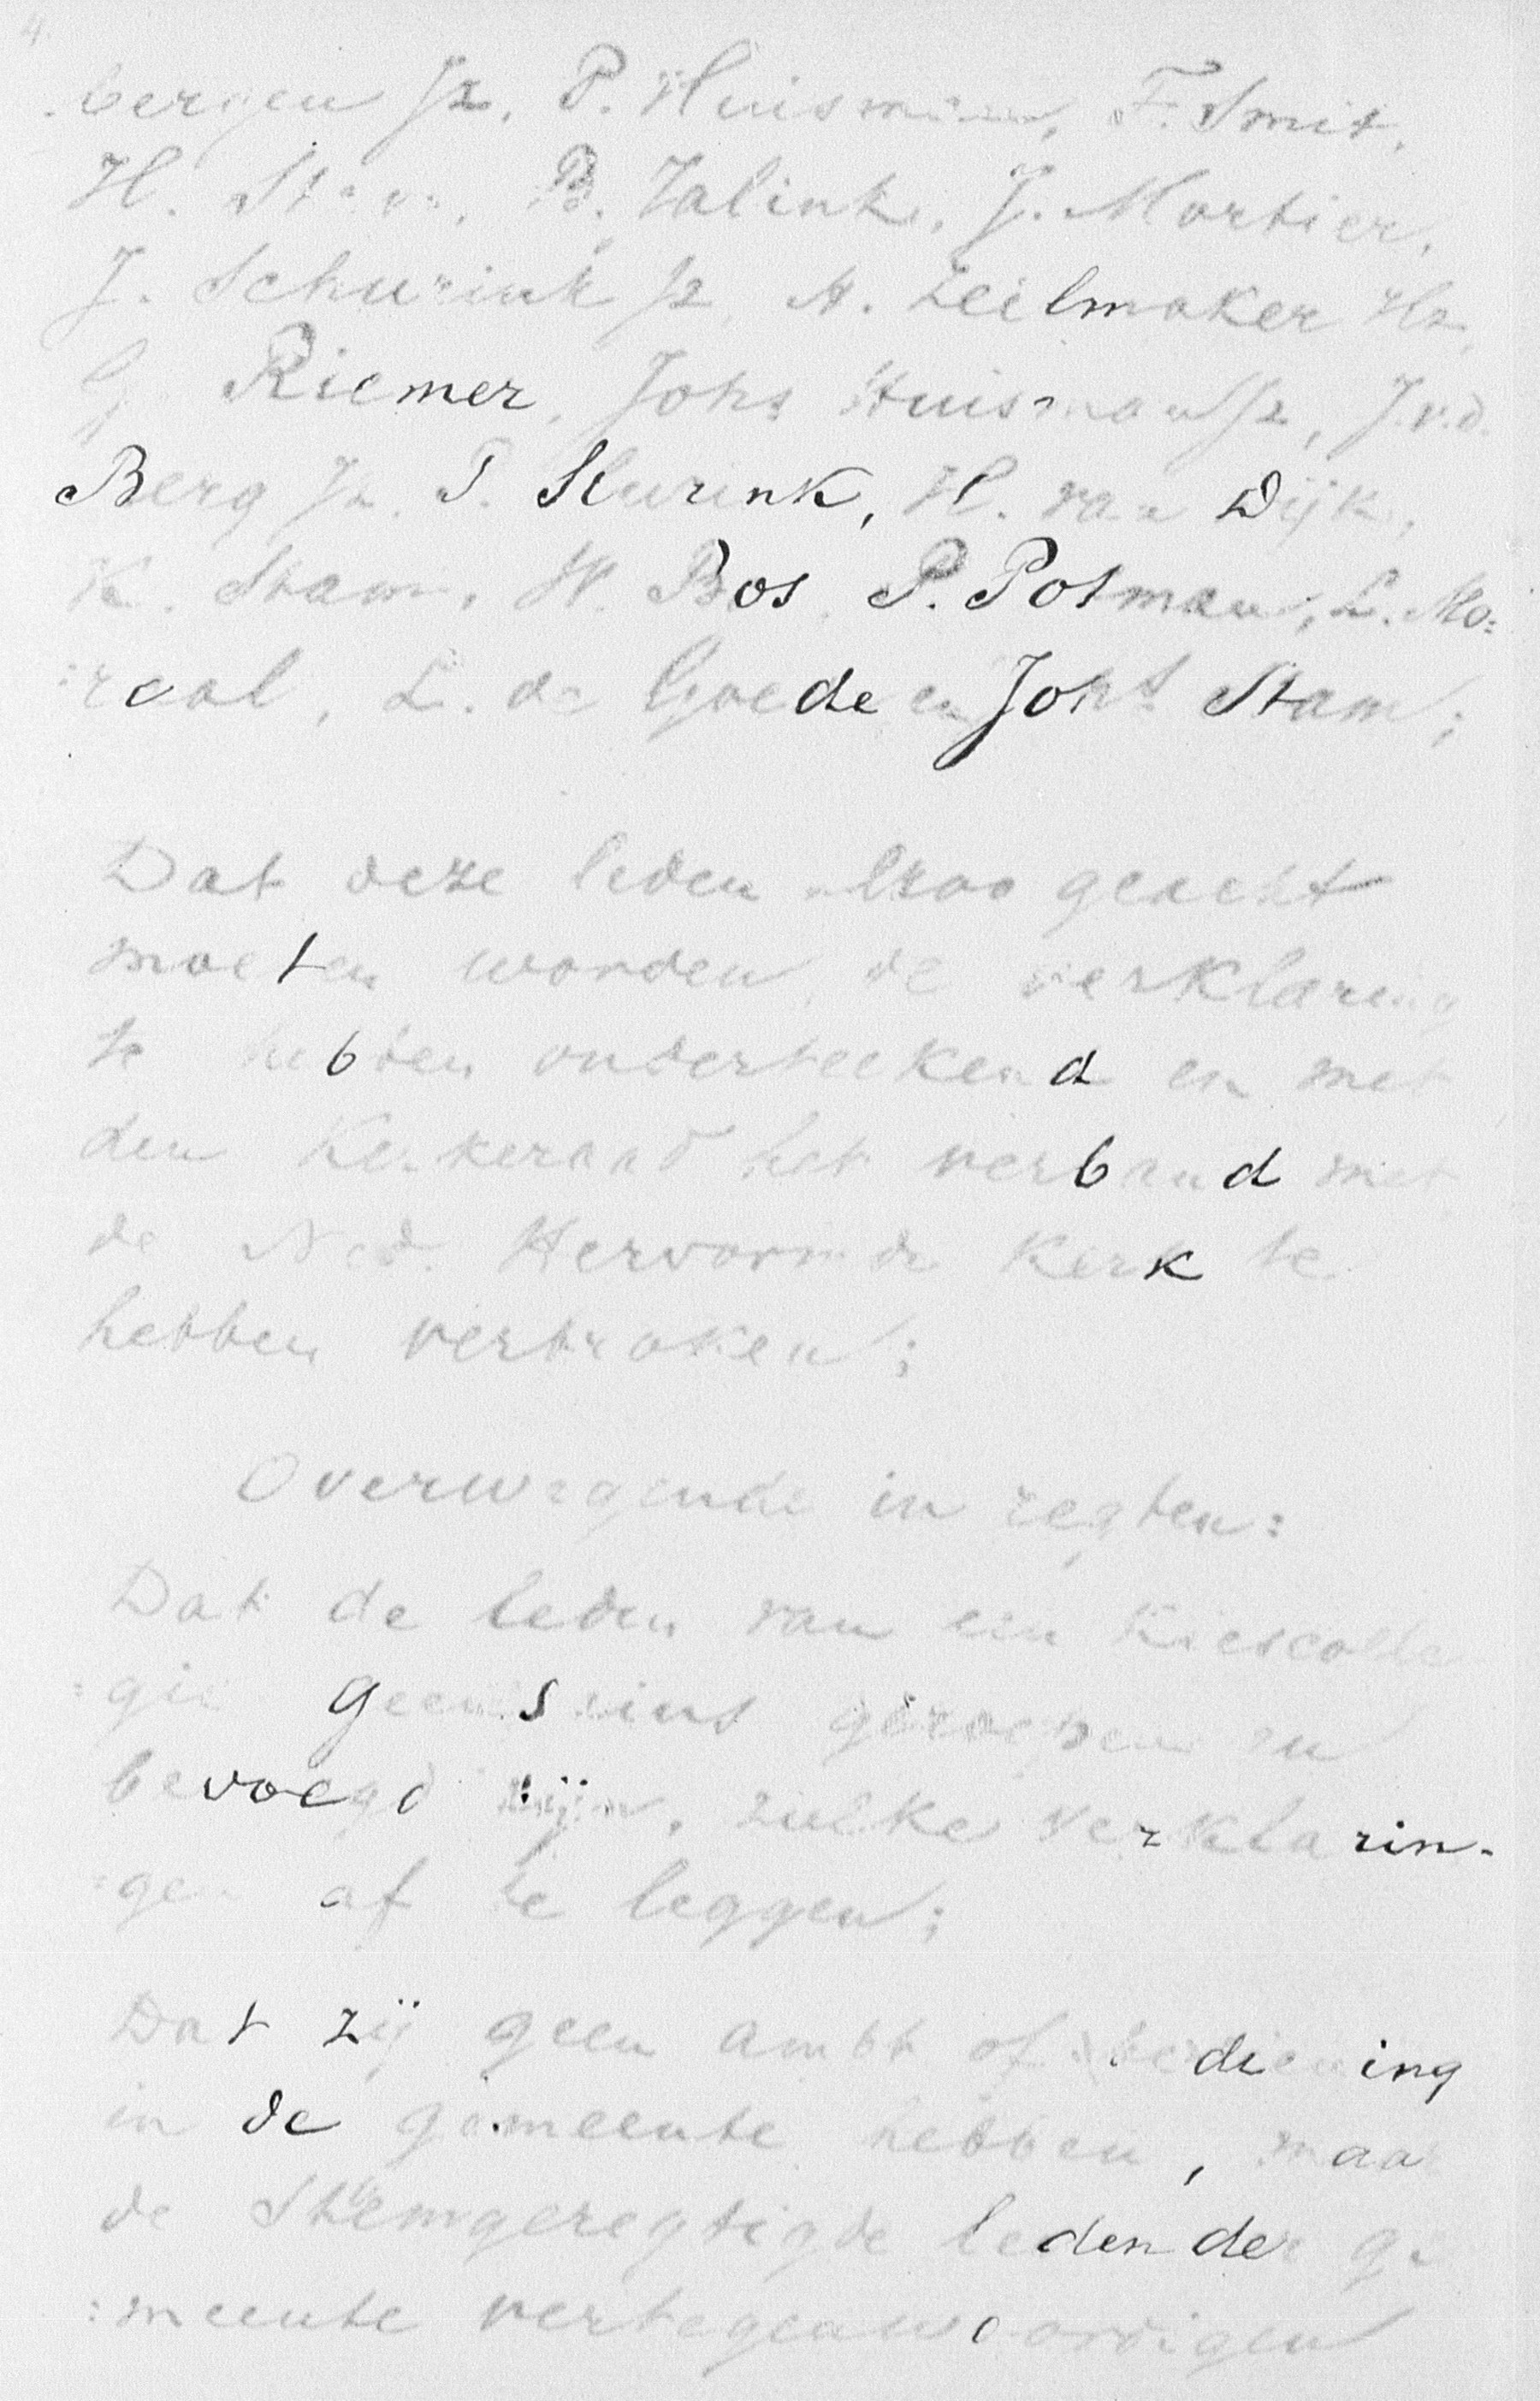 4.
bergen Jz, P. Huisman, F. Smit,
H. Stam, B. Jalink, J. Mortier,
J. Schurink Jz, A. Zeilmaker Hz,
G Riemer, Johs Huisman Jz, J.v.d.
Berg Jz. P. Slurink, H. van Dijk,
K. Stam, W. Bos, P. Posman, L. Mo:
:raal, L. de Goede en Johs Stam;
Dat deze leden alzoo geacht
moeten worden, de verklaring
te hebben onderteekend en met
den Kerkeraad het verband met
de Ned. Hervormde Kerk te
hebben verbroken;
Overwegende in regten:
Dat de leden van een Kiescolle
:gie geenszins geroepen en
bevoegd zijn, zulke verklarin-
:gen af te leggen;
Dat zij geen ambt of bediening
in de gemeente hebben, maar
de Stemgeregtigde leden der ge
:meente vertegenwoordigen